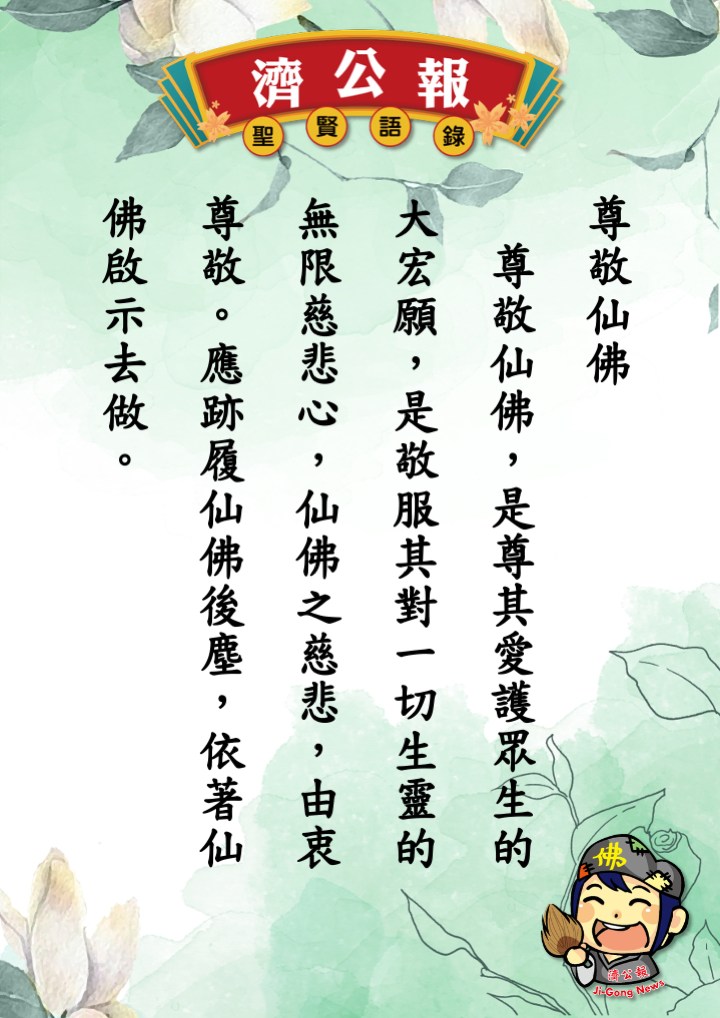 濟公報
聖賢語錄
尊敬仙佛
尊敬仙佛，是尊其愛護眾生的
大宏願，是敬服其對一切生靈的
無限慈悲心，仙佛之慈悲，由衷
尊敬。應跡履仙佛後塵，依著仙
佛啟示去做。
佛
濟公報
Ji-Gong News